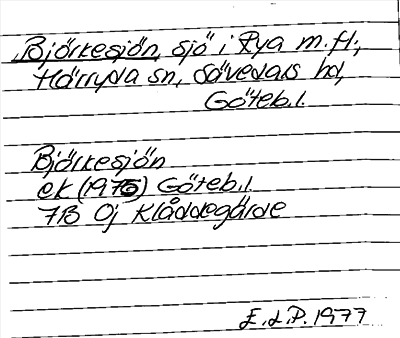 Björkesjön, sjö i Rya m.fl.,
Härryda sn, Sävedals hd,
Göteb.l.
Björkesjön
ek (1976) Göteb.l.
7B 0j Klåddegärde
E.d.P. 1977